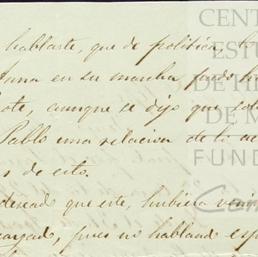 hablarte, que de politica, to
en su marcha puedo h
ote, aunque se dijo que
Pablo una relacion de
s de esto.
deseado que este, hubiera veni
cargado, pues no hablando esp
CENT
EST
DE HI
DE M
FUND